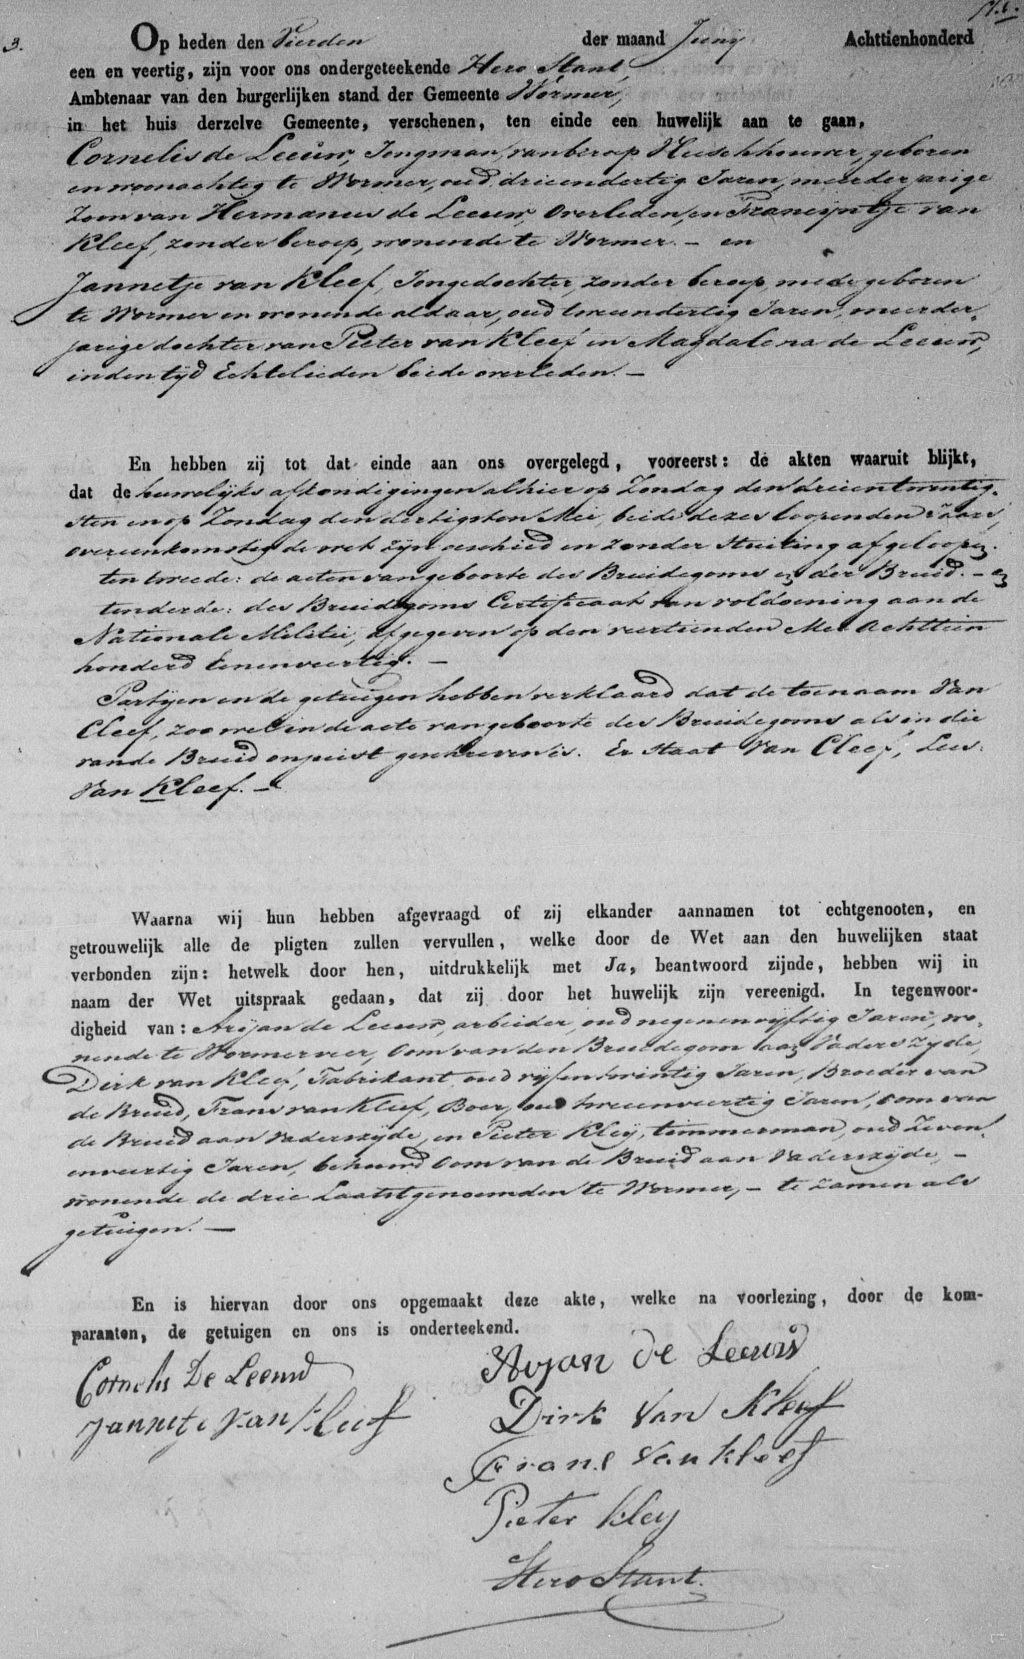 N. 6.
3. Op heden den Vierden der maand Junij Achttienhonderd
een en veertig, zijn voor ons ondergeteekende Hero Stant,
Ambtenaar van den burgerlijken stand der Gemeente Wormer,
in het huis derzelve Gemeente, verschenen, ten einde een huwelijk aan te gaan,
Cornelis de Leeuw, Jongman, van beroep Vleeschhouwer, geboren
en woonachtig te Wormer, oud drieendertig Jaren, meerderjarige
Zoon van Hermanus de Leeuw, Overleden, en Francijntje van
Kleef, zonder beroep, wonende te Wormer. – en
Jannetje van Kleef, Jongedochter, zonder beroep, mede geboren
te Wormer en wonende aldaar, oud tweeendertig Jaren, meerder-
jarige dochter van Pieter van Kleef en Magdalena de Leeuw,
in den tijd Echtelieden beide overleden. –
En hebben zij tot dat einde aan ons overgelegd, vooreerst: de akten waaruit blijkt,
dat de huwelijks afkondigingen alhier op Zondag den drieentwintig-
sten en op Zondag den dertigsten Mei, beide dezes loopenden Jaars,
overeenkomstig de wet zijn geschied en zonder Stuiting afgeloopen.
ten tweede: de acten van geboorte des Bruidegoms en der Bruid. – en
ten derde: des Bruidegoms Certificaat van voldoening aan de
Nationale Militie, afgegeven op den veertienden Mei Achttien
honderd Eenenveertig. –
Partijen en de getuigen hebben verklaard dat de toenaam Van
Cleef, zoo wel in de acte van geboorte des Bruidegoms als in die
van de Bruid onjuist geschreven is. Er Staat Van Cleef, Lees:
Van Kleef. –
Waarna wij hun hebben afgevraagd of zij elkander aannamen tot echtgenooten, en
getrouwelijk alle de pligten zullen vervullen, welke door de Wet aan den huwelijken staat
verbonden zijn: hetwelk door hen, uitdrukkelijk met Ja, beantwoord zijnde, hebben wij in
naam der Wet uitspraak gedaan, dat zij door het huwelijk zijn vereenigd. In tegenwoor-
digheid van: Arijan de Leeuw, arbeider, oud negenenvijftig Jaren, wo-
nende te Wormerveer, Oom van den Bruidegom aan Vaderszijde,
Dirk van Kleef, Fabrikant, oud vijfentwintig Jaren, Broeder van
de Bruid, Frans van Kleef, Boer, oud tweeenveertig Jaren, Oom van
de Bruid aan Vaderszijde, en Pieter Kleij, timmerman, oud Zeven-
enveertig Jaren, behuwd Oom van de Bruid aan Vaderszijde, –
wonende de drie Laatstgenoemden te Wormer, – te zamen als
getuigen. –
En is hiervan door ons opgemaakt deze akte, welke na voorlezing, door de kom-
paranten, de getuigen en ons is onderteekend.
Cornelis De Leeuw
Jannetje van Kleef
Arijan de Leeuw
Dirk Van Kleef
Frans Van Kleef
Pieter Kleij
Hero Stant.